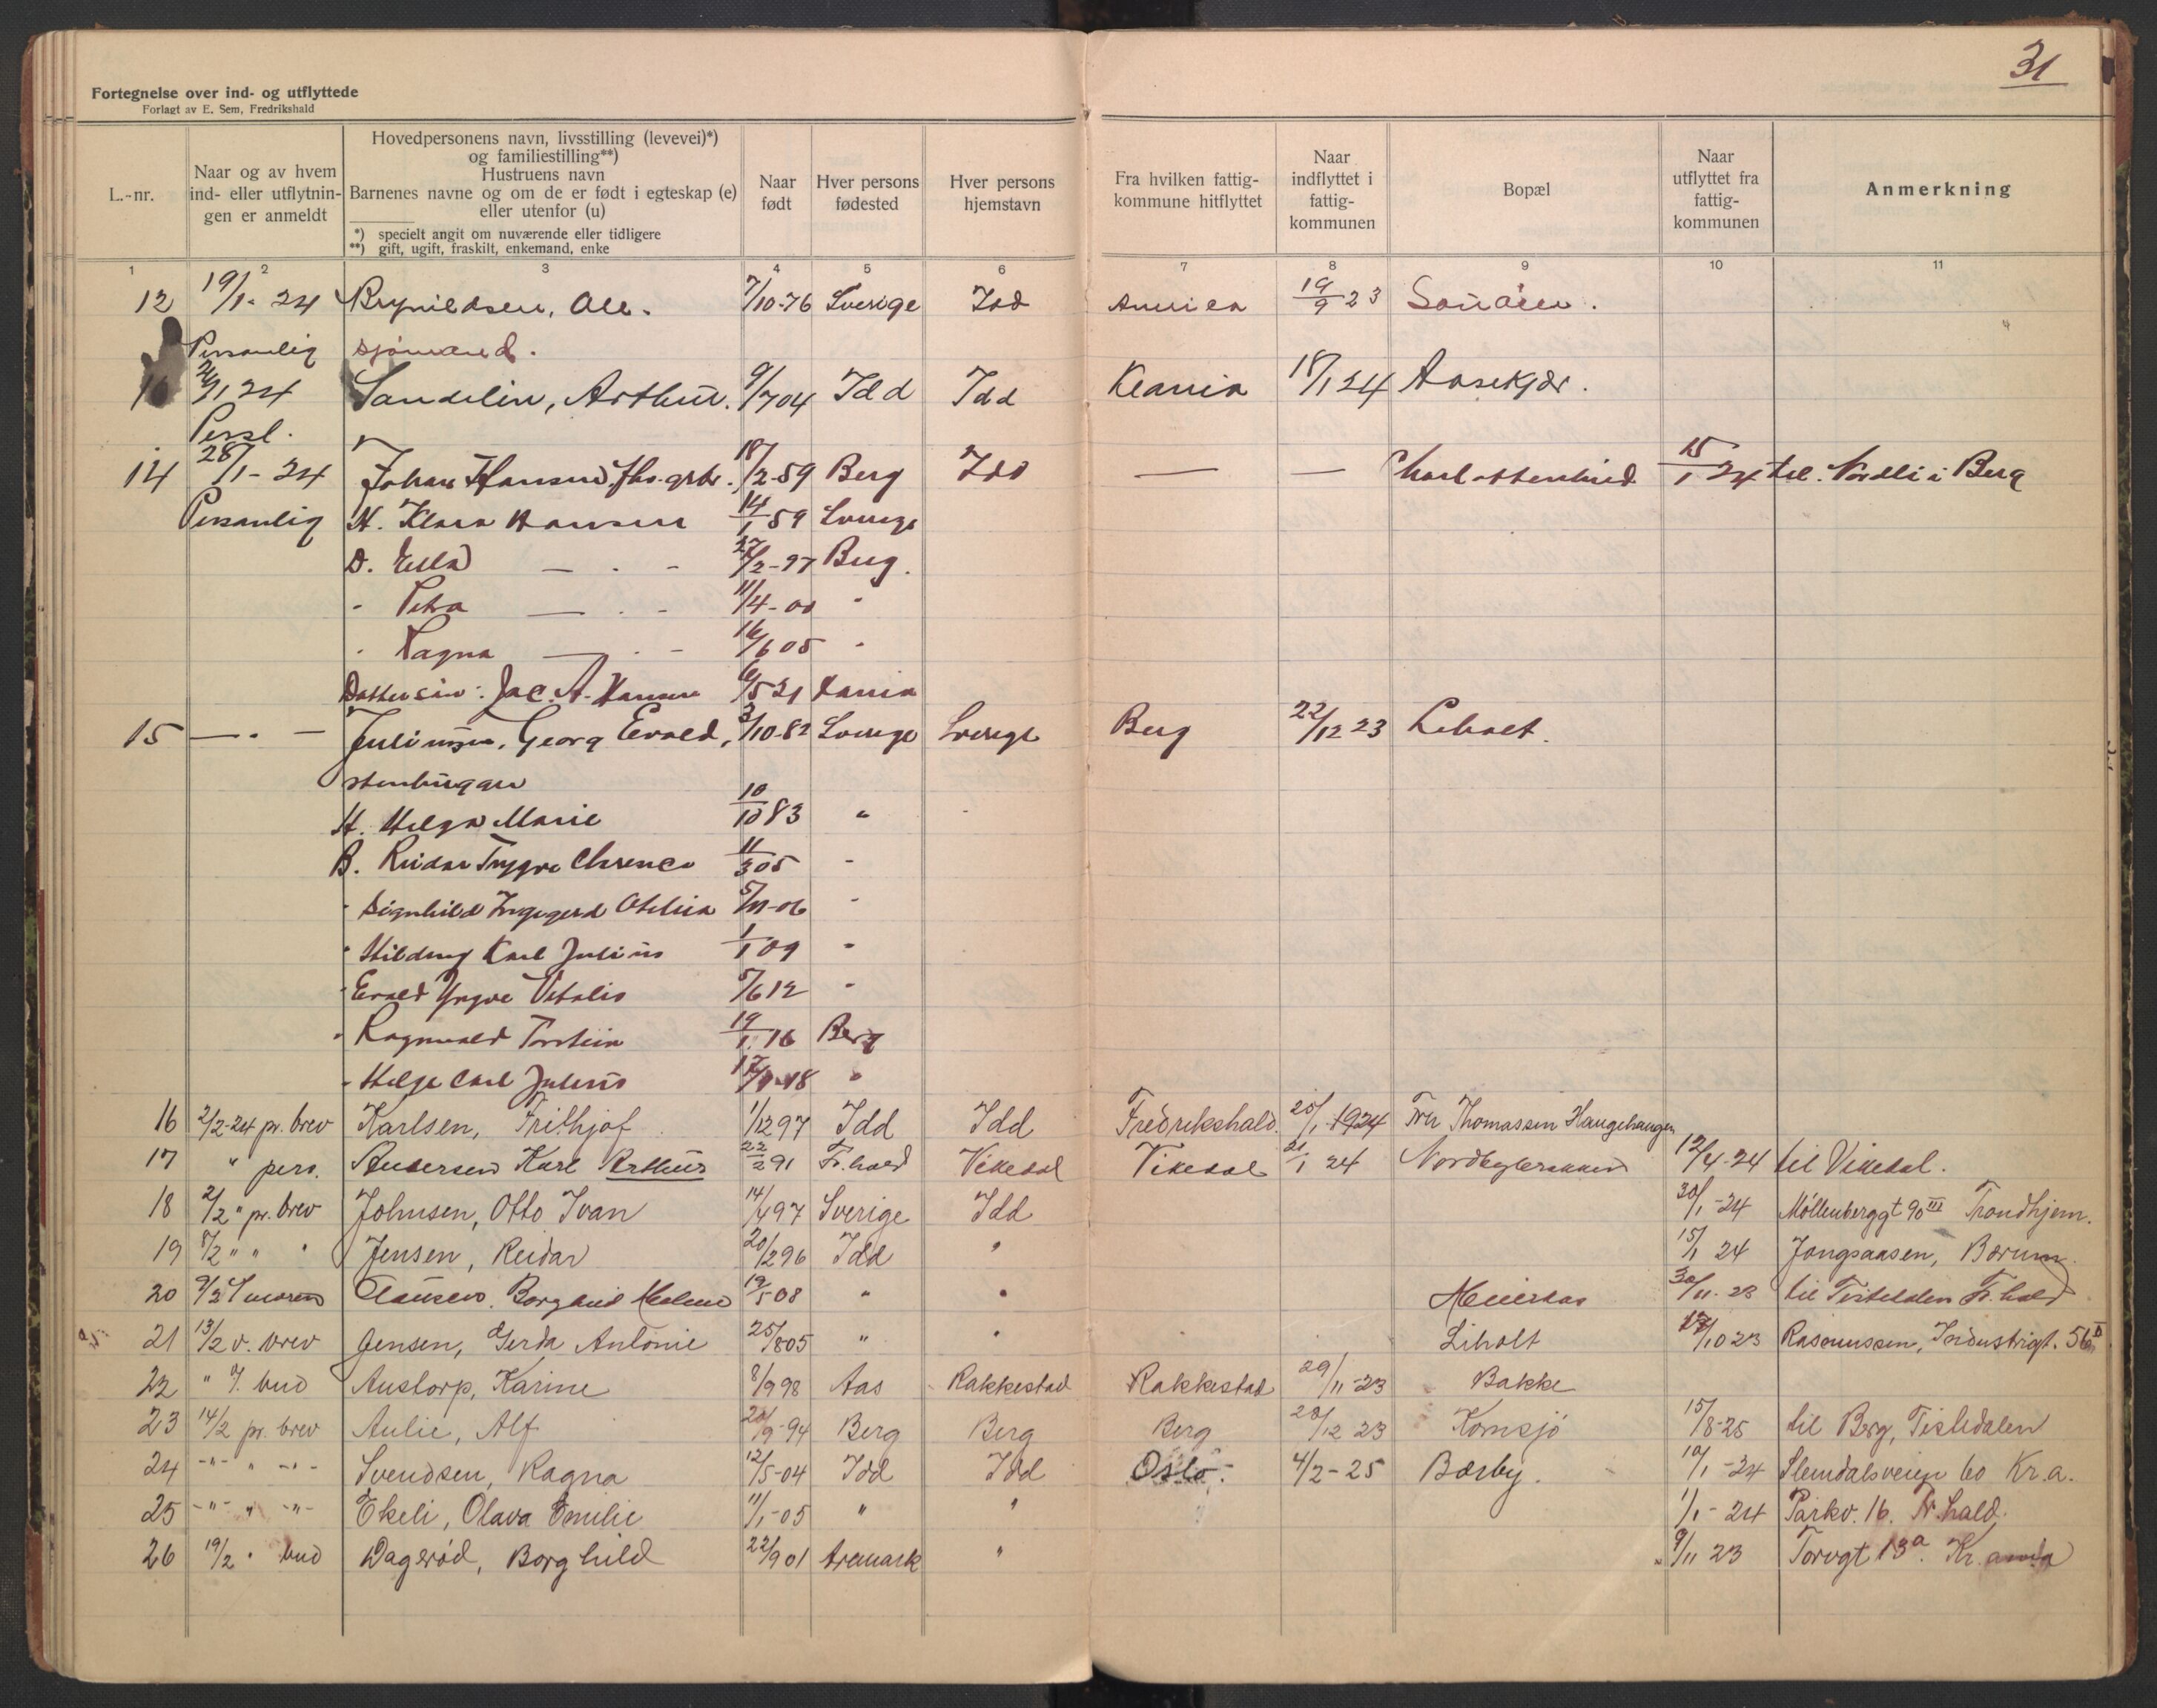 31
Fortegnelse over ind- og utflyttede
Forlagt av E. Sem, Fredrikshald
L.-nr.
Naar og av hvem
ind- eller utflytnin-
gen er anmeldt
Hovedpersonens navn, livsstilling (levevei)*)
og familiestilling**)
Hustruens navn
Barnenes navne og om de er født i egteskap (e)
eller utenfor (u)
*) specielt angit om nuværende eller tidligere
**) gift, ugift, fraskilt, enkemand, enke
Naar
født
Hver persons
fødested
Hver persons
hjemstavn
Fra hvilken fattig-
kommune hitflyttet
Naar
indflyttet i
fattig-
kommunen
Bopæl
Naar
utflyttet fra
fattig-
kommunen
Anmerkning
1 2 3 4 5 6 7 8 9 10 11
12 19/1- 24 Brynildsen, Ole. 7/10-76 Sverige Idd 19/9 23
Personlig sjømand.
24 Sandelin, Arthur. 9/7 04 Idd Idd Kania 18/1 24 Aasekjær.
Persl.
14 28/1- 24 Johan Hansen 18/2-59 Berg Idd — — 15/1 24 til Nordli i Berg
Personlig H. Klara Hansen 14/1 59 Sverige
D. Ella — . - 27/2-97 Berg.
- Petra — . - 11/4-00 "
- Ragna — . - 16/6 05 "
Dattersøn: Jac. A. Hansen 6/5 21 Kania
15 — . — Juliussen, Georg Evald, 3/10-82 Sverige Sverige Berg 22/12 23 Liholt.
stenhugger
H. Helga Marie 10/10 83 "
B. Reidar Trygve Clarence 11/3 05 -
- Signhild Ingegerd Otelia 5/11-06 -
- Hilding Karl Julius 1/1 09 -
- Evald Yngve Vitalis 5/6 12 -
- Ragnvald Torstein 19/1 16 Berg
- Helge Carl Julius 18 "
16 2/2-24 pr. brev Karlsen, Frithjof 1/12 97 Idd Idd Fredrikshald. 25/1-1924 Fru Thomassen Haugehaugen
17 " pers. Andersen Karl Arthur 22/2 91 Fr.hald Vikedal Vikedal 21/1 24 12/4-24 til Vikedal.
18 2/2 " pr. brev Johnsen, Otto Ivan 14/4 97 Sverige Idd 30/1-24 Møllenberggt 90 III Trondhjem.
19 8/2 " " " Jensen, Reidar 20/2 96 Idd " 15/1 24 Jongsaasen, Bærum.
20 9/2 Clausen, Borghild Helene 19/5 08 " " 30/11-23 til Tistedalen Fr.hald
21 13/2 v. brev Jensen, Gerda Antonie 25/8 05 " " Liholt 10 23 Rasmussen, Industrigt. 56
22 " J. bud Austorp, Karine 8/9 98 Aas Rakkestad Rakkestad 29/11-23 Bakke
23 14/2 pr. brev Aulie, Alf 20/9-94 Berg Berg Berg 28/12 23 Kornsjø 15/8-25 til Berg, Tistedalen
24 -"- " -"- Svendsen, Ragna 12/5-04 Idd Idd Oslo. 4/2-25 Bærby. 10/1-24 Slemdalsveien 60 Kr.a.
25 -"- " -"- Ekeli, Olava Emilie 11/1-05 " " 1/1-24 Parkv. 16. Fr.hald.
26 19/2 " bud Dagsrød, Borghild 22/9 01 Aremark " 9/11 23 Torvgt 13a. Kr.